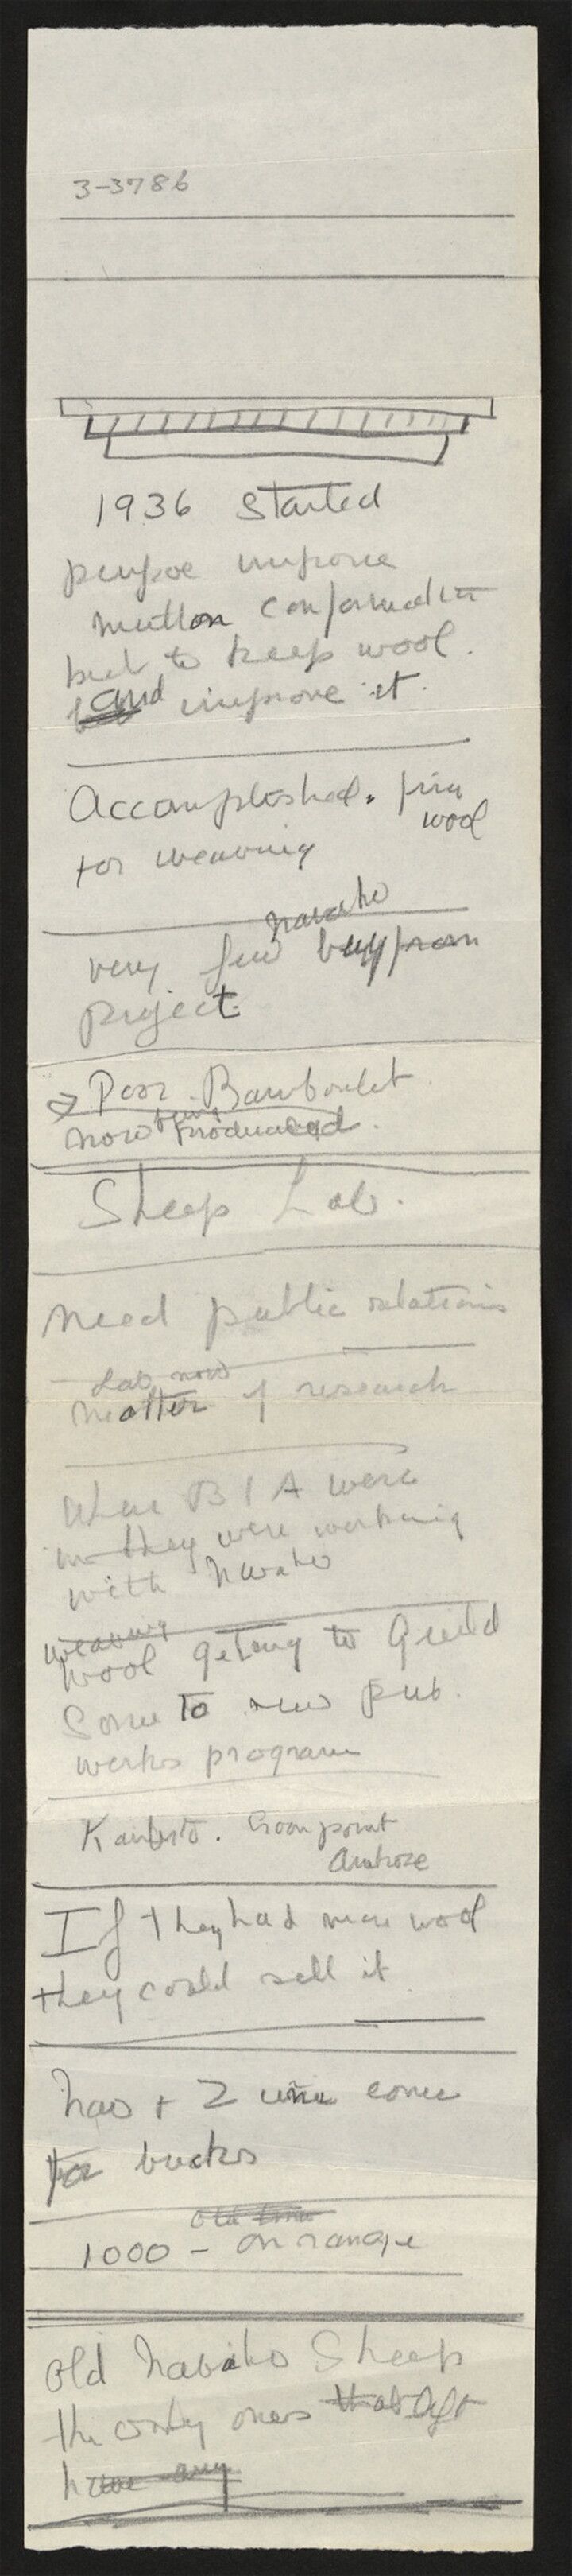 3-3786
1936 Started
purpose improve
mutton conformation
but to keep wool.
and improve it.
Accomplished. fine
wool
for weaving
navaho
very few buy from
project
Poor Rambouillet
now being produced.
Sheep Lab.
need public relations
Lab now
matter of research
When BIA were
they were working
with Navaho
weaving
wool getting to Guild
Some to new pub.
works program
Kanberto. Crown point
Ambrose
If they had more wool
they could sell it
has + Z come
for bucks
old time
1000 - on range
old Navaho Sheep
the only ones that left
have any